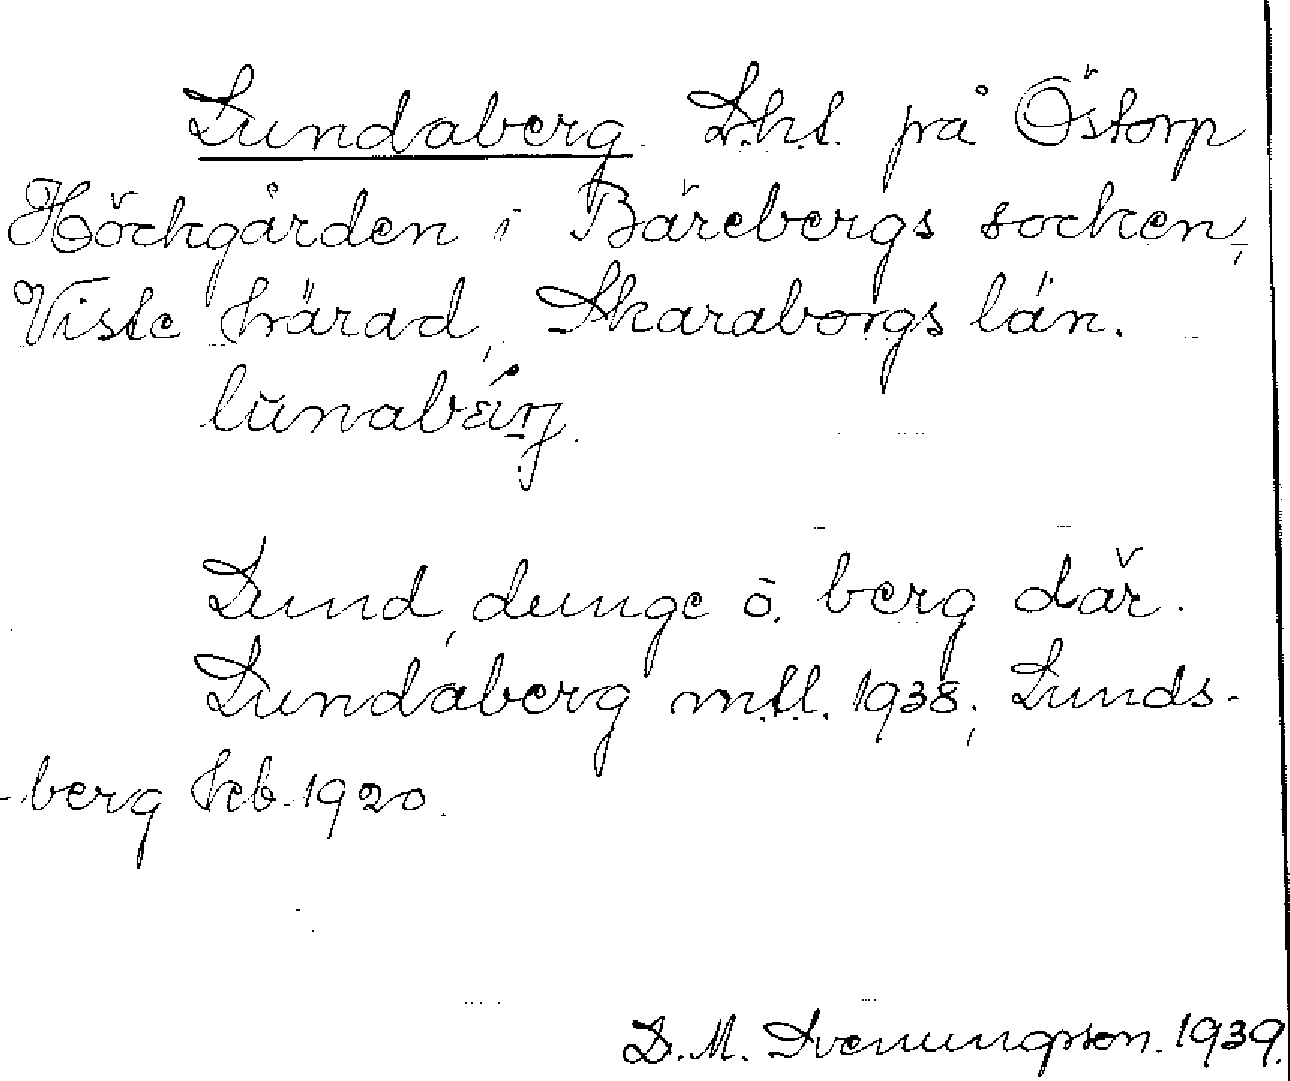 Lundaberg. L.h.t. på Östorp
Höckgården i Bärebergs socken,
Viste härad, Skaraborgs län.
Lund, dunge o. berg där.
Lundaberg m.t.l. 1938; Lunds-
-berg Jeb. 1920.
D. M. Svenungsson. 1939.